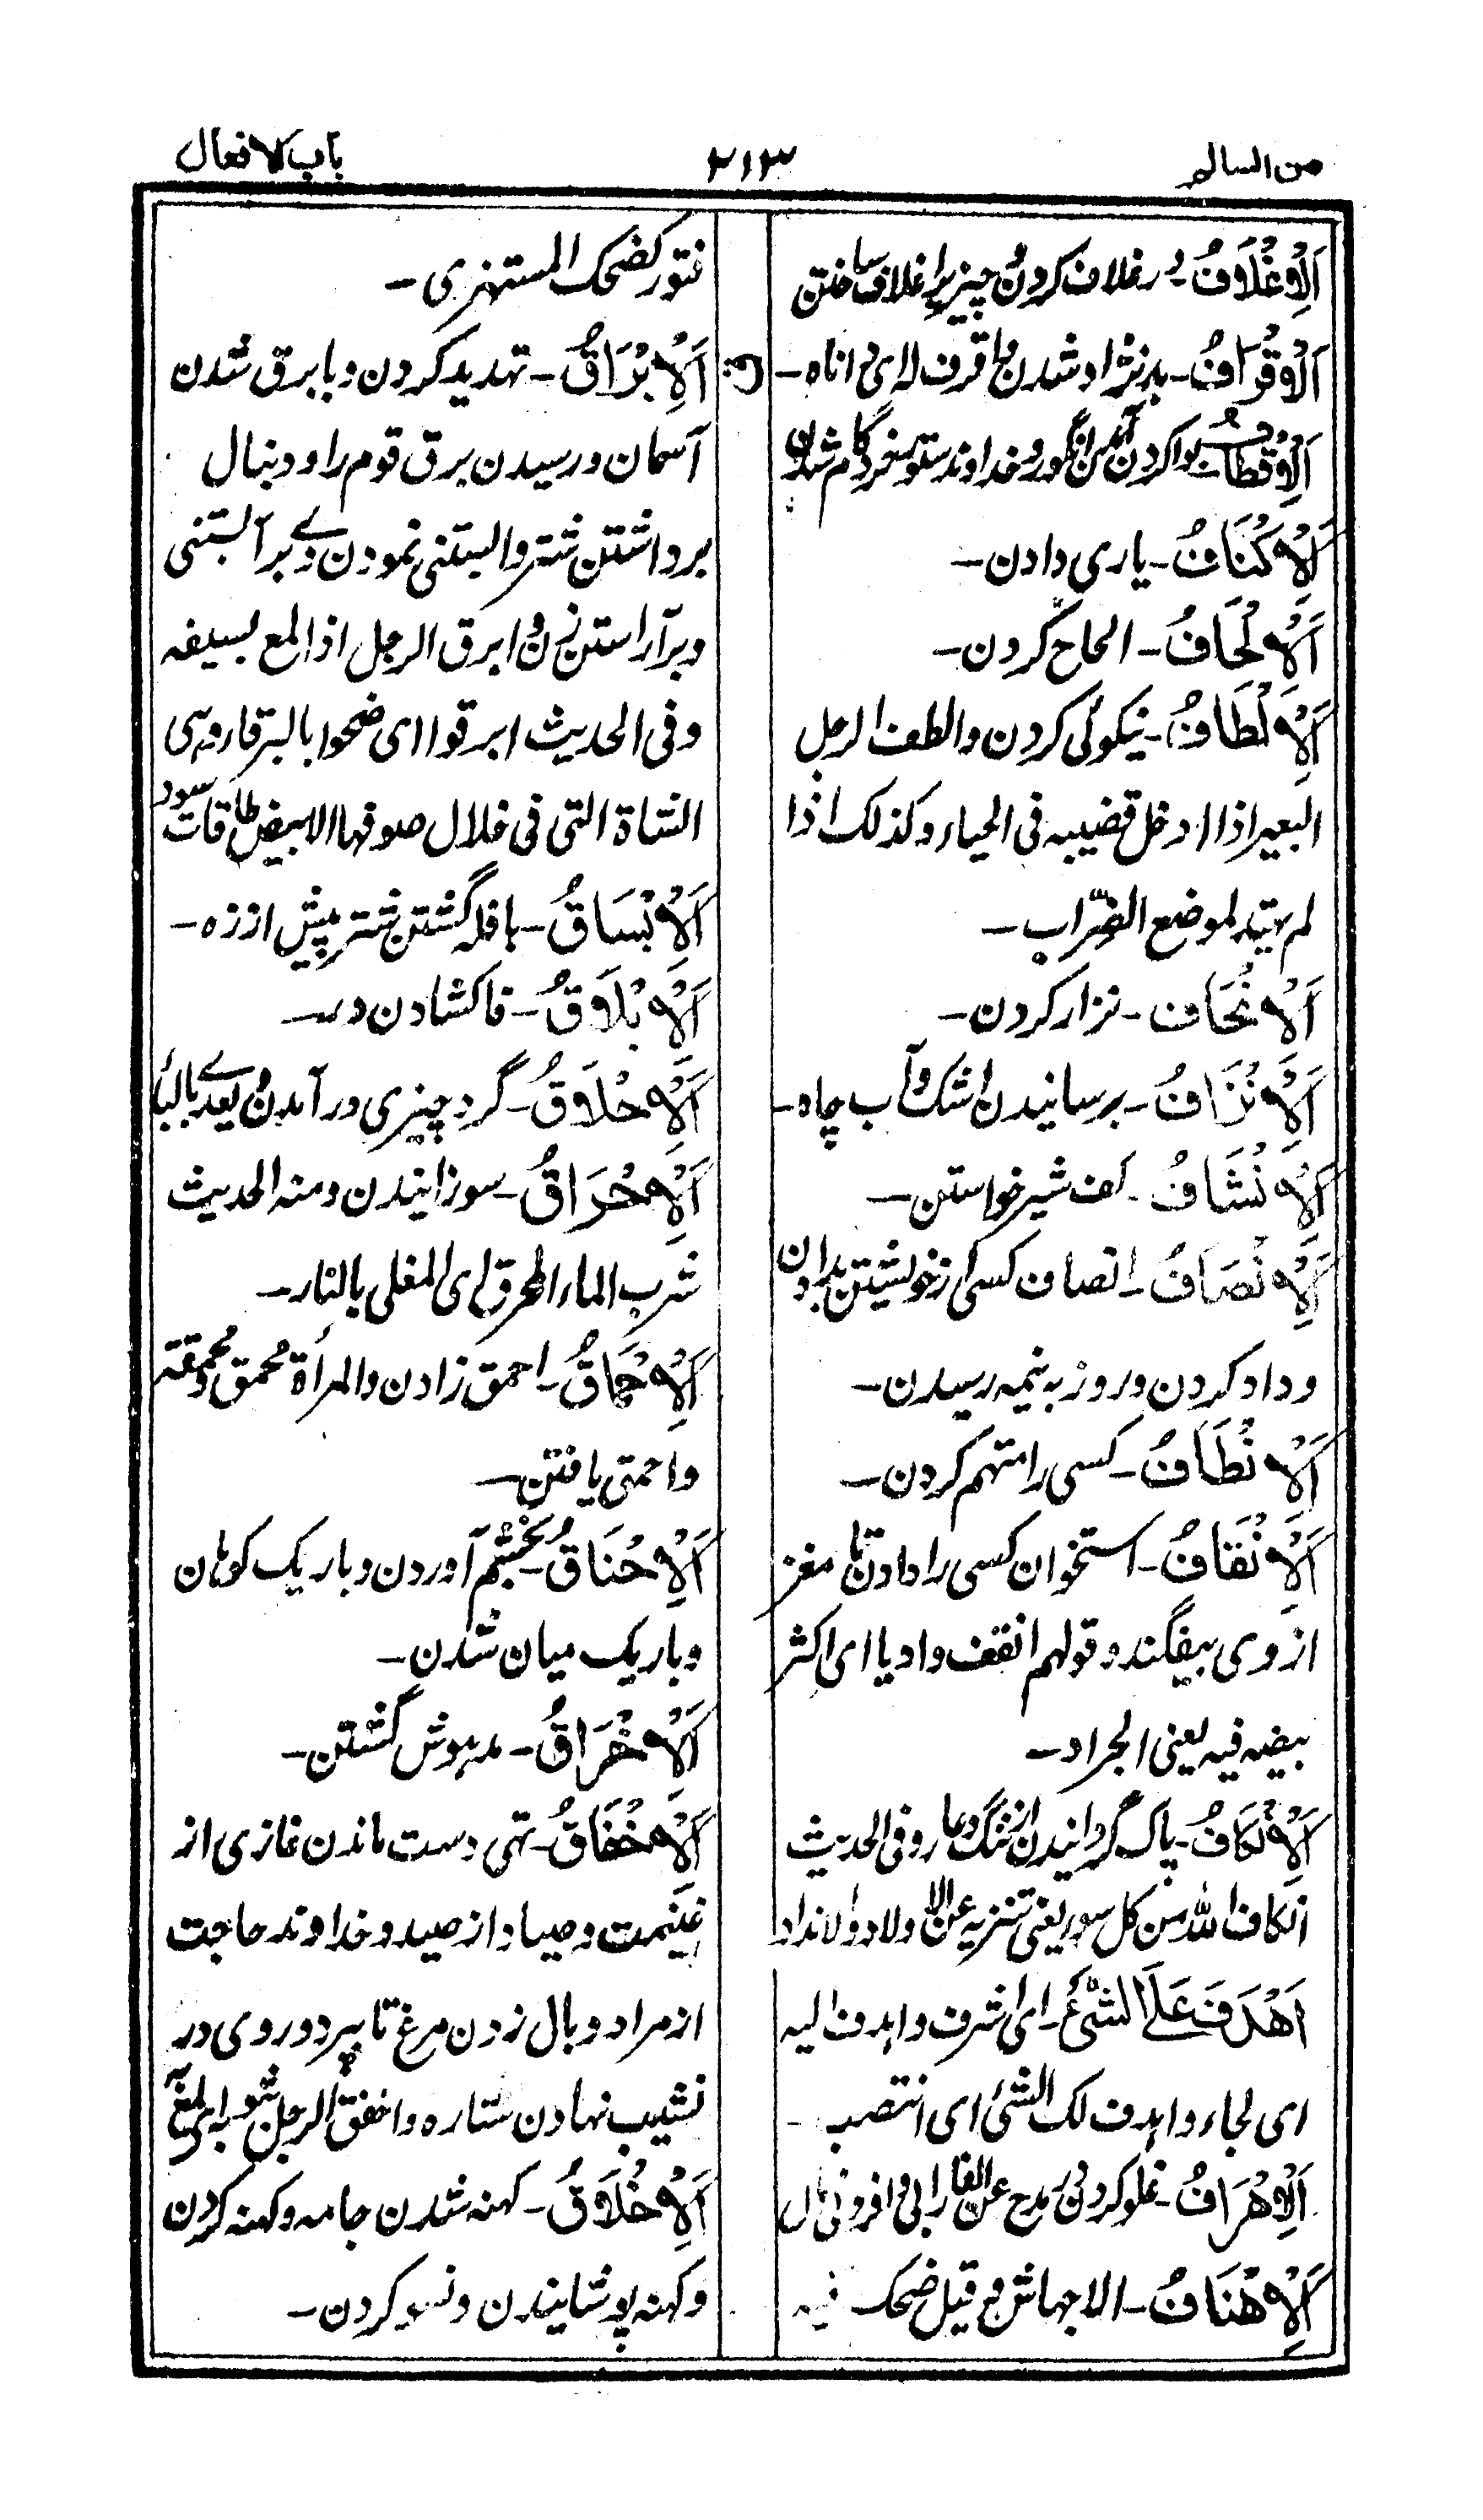 من السالم ۲۱۳ باب الافعال
اَلْاِغْلَافُ ـ در غلاف کردن و چیزیرا غلاف ساختن
اَلْاِقْرَافُ ـ بدنژاد شدن و اقرف له ای داناه ـ
اَلْاِقْطَافُ ـ کردن انگور و خداوند ستور خرد گام شدن
اَلْاِکْنَافُ ـ یاری دادن ـ
اَلْاِلْحَافُ ـ الحاح کردن ـ
اَلْاِلْطَافُ ـ نیکوئی کردن والطف الرجل
البعیر اذا ادخل قضیبه فی الحیاء و کذلک اذا
لم یهتد لموضع الضّراب ـ
اَلْاِنْحَاف ـ نزار کردن ـ
اَلْاِنْزَافُ ـ برسانیدن اشک و آب چاه ـ
اَلْاِنْشَافُ ـ کف شیر خواستن ـ
اَلْاِنْصَافُ ـ انصاف کسی از خویشتن بدادن
و داد کردن و روز به نیمه رسیدن ـ
اَلْاِنْطَافُ ـ کسی را متهم کردن ـ
اَلْاِنْقَافُ ـ استخوان کسی را دادن تا مغز
از وی بیفگند و قولهم انقف وادیا ای اکثر
بیضه فیه یعنی الجراد ـ
اَلْاِنْکَافُ ـ پاک گردانیدن از ننگ و عار و فی الحدیث
انکاف الله من کل سوء یعنی تنزیه عن الاولاد والانداد
اَهْدَفَ عَلَی الشَّیْءُ ـ ای اشرف و اهدف الیه
ای لجاء و اهدف لک الشئ ای انتصب ـ
اَلْاِهْرَافُ ـ غلو کردن در مدح عن الفارابی و افزونی مال
اَلْاِهْنَافُ ـ الاجهاش و قیل ضحک فیه
فتور کضحک المستهزی ـ
ق
اَلْاِبْرَاقُ ـ تهدید کردن و با برق شدن
آسمان و رسیدن برق قوم را و دنبال
برداشتن شتر و آبستنی نمودن وے بر آبستنی
و برآراستن زن و ابرق الرجل اذا لمع بسیفه
و فی الحدیث ابرقوا ای ضحوا بالبرقاء وهی
الشاة التی فی خلال صوفها الابیض طاقات سود
اَلْاِبْسَاقُ ـ با فله گشتن شتر پیش از زه ـ
اَلْاِبْلَاقُ ـ فا کشادن در ـ
اَلْاِحْلَاقُ ـ گرد چیزی در آمدن و یعدے بالباء
اَلْاِحْرَاقُ ـ سوزانیدن و منه الحدیث
شرب الماء المحرق ای المغلی بالنار ـ
اَلْاِحْمَاقُ ـ احمق زادن والمرأة محمق و محمقة
و احمق یافتن ـ
اَلْاِحْنَاقُ ـ بخشم آوردن و باریک کوهان
و باریک میان شدن ـ
اَلْاِخْرَاقُ ـ مدهوش گشتن ـ
اَلْاِخْفَاقُ ـ تهی دست ماندن غازی از
غنیمت و صیاد از صید و خداوند حاجت
از مراد و بال زدن مرغ تا بپرد و روی در
نشیب نهادن ستاره و اخفق الرجل بثوبه ای لمع به
اَلْاِخْلَاقُ ـ کهنه شدن جامه و کهنه کردن
و کهنه پوشانیدن و نسو کردن ـ